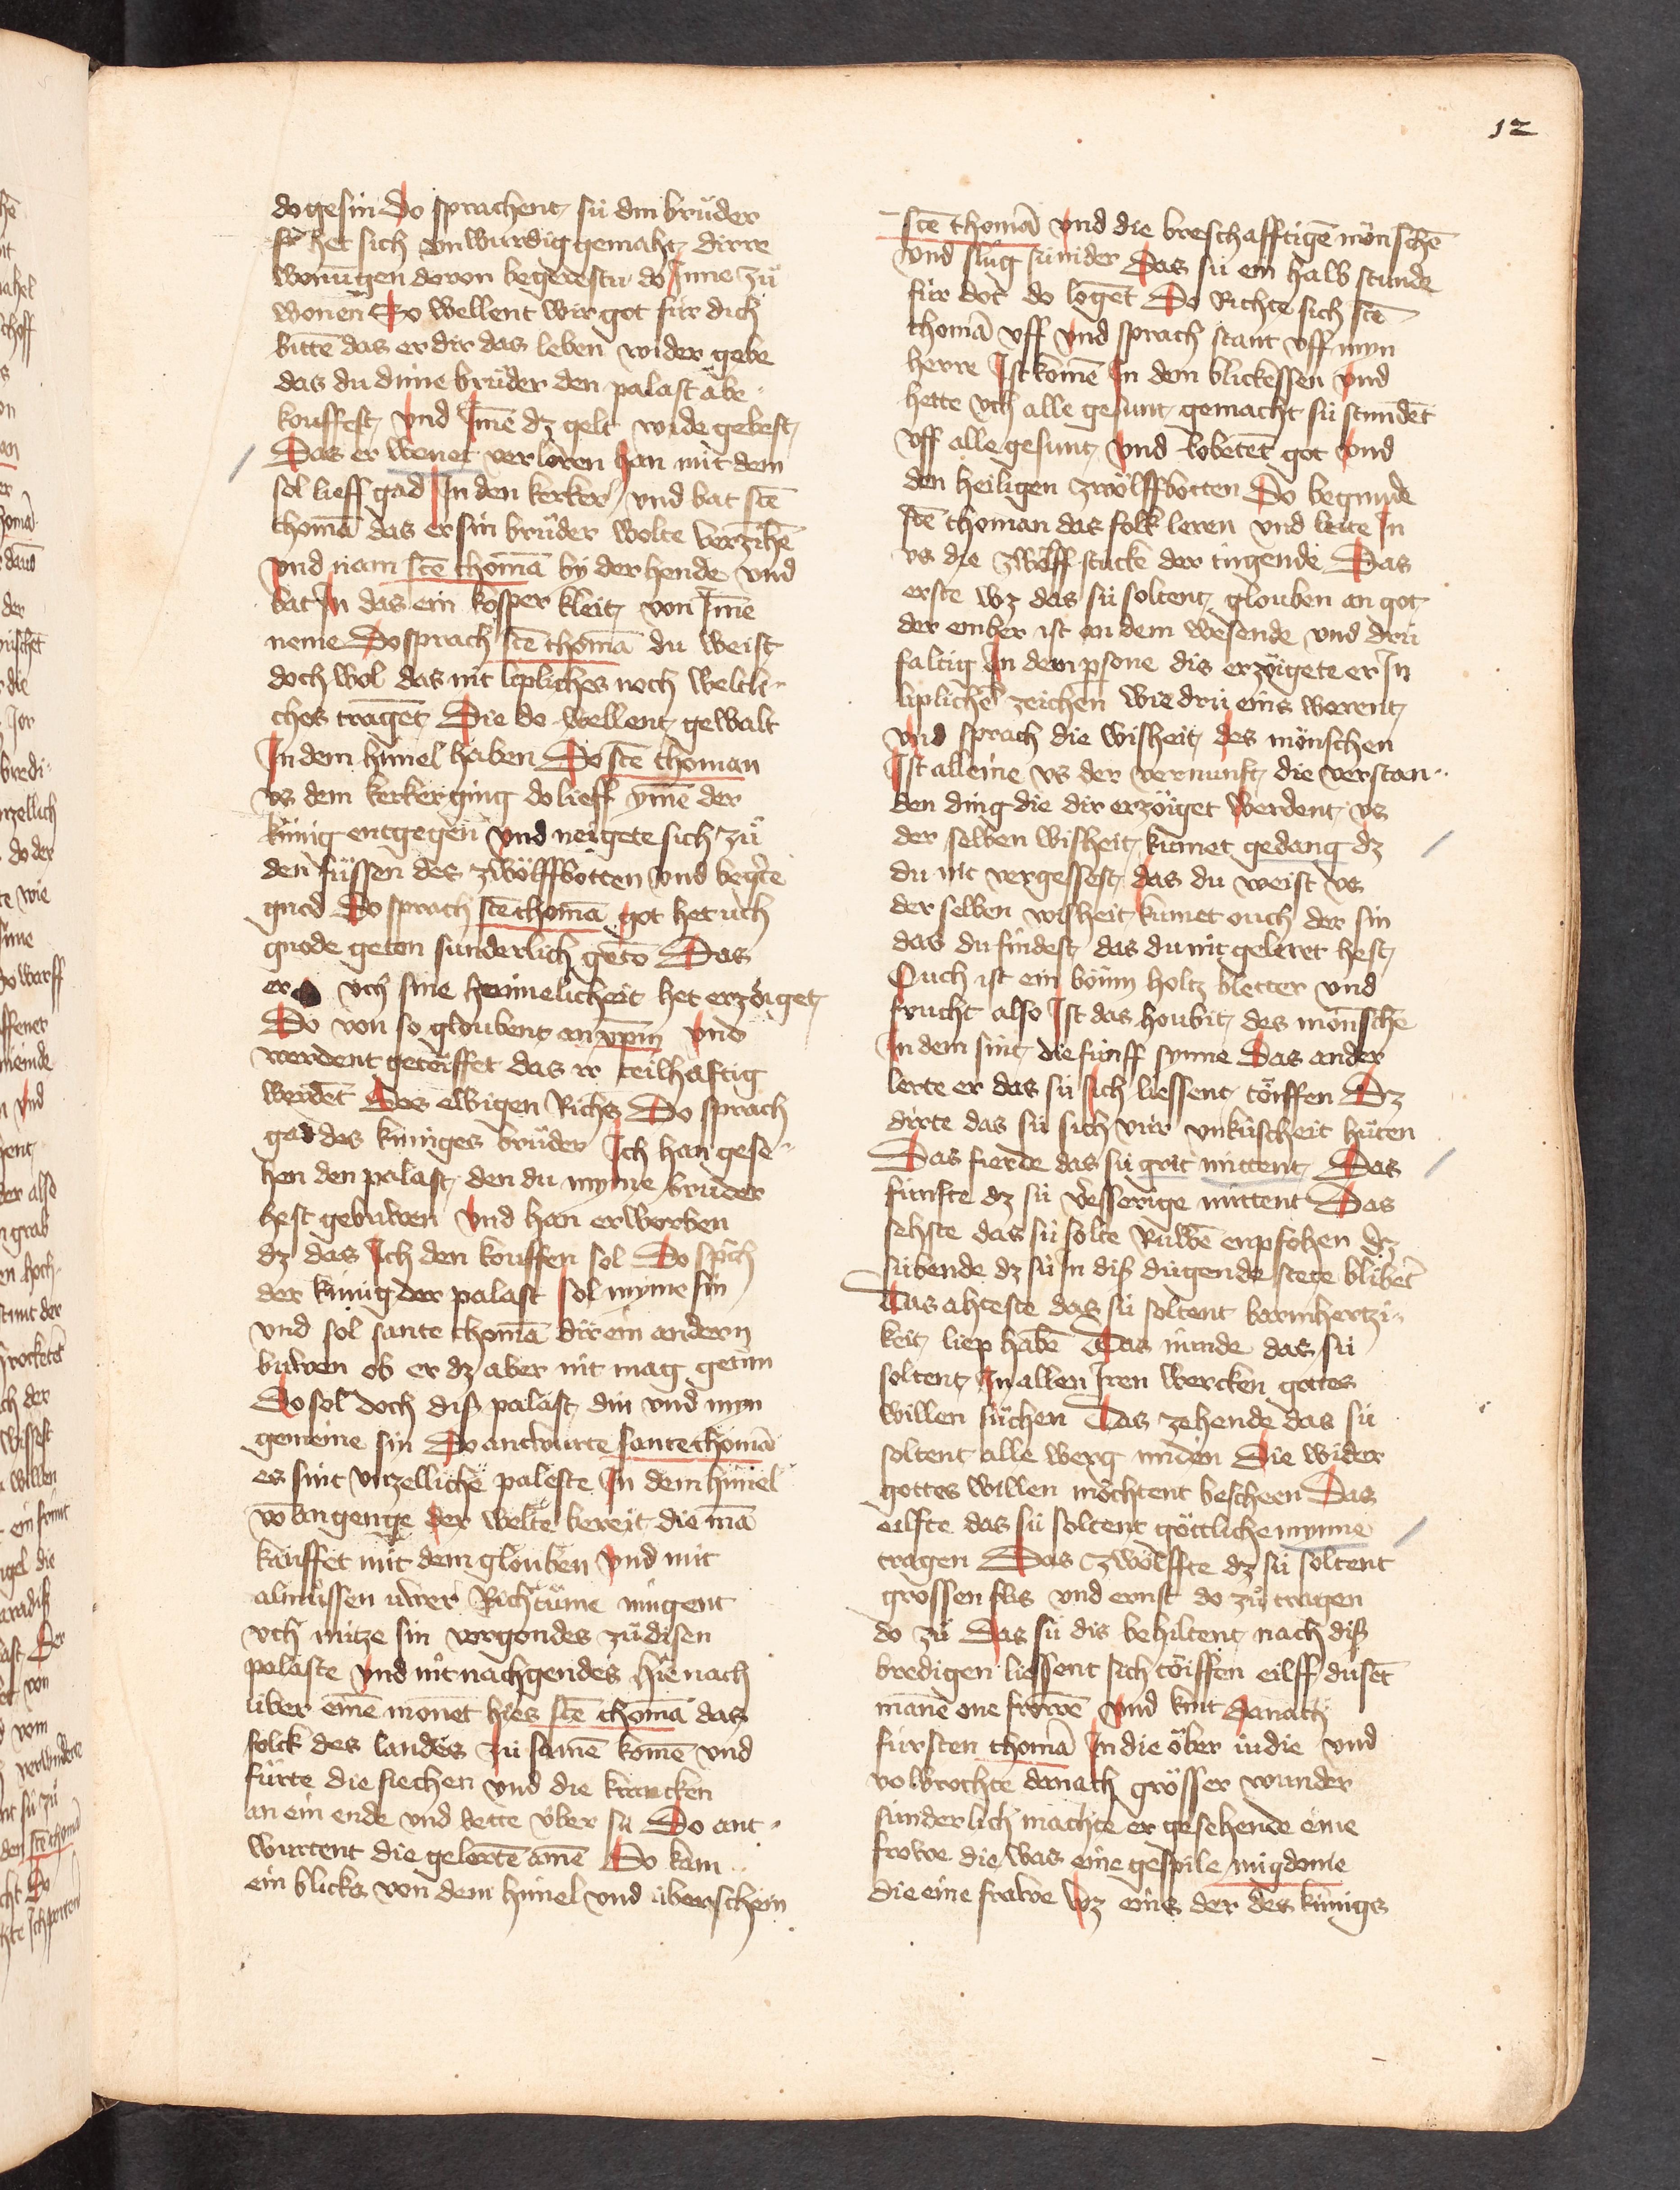 12
do gesin Do sprachent sü din brůder
het sich vnwurdig gemaht dirre
wonūgen do von begerestu do Jnne zů
wonen So wellent wir got für dich
bittē das er dir das leben wider gebe
das du dime brůder den palast abe
kouffest vnd Jmē dz gelt wide gebest
Das er wenet verloren han mit dem
sol lieff gad Jn den kerker vnd bat stē
thomā das er sin brůder wolte verzihē
vnd nam stē thomā by der hende vnd
bat Jn das ein kosper kleit von Jmē
neme Do sprach stē thomā du weist
doch wol das nit lipliches noch weltli
ches traget Die do wellent gewalt
Jn dem himel haben Do stē thoman
vs dem kerker ging do lieff ymē der
künig entgegen vnd neigete sich zů
den füssen des zwölffbotten vnd begᵉte
gnod Do sprach stē thomā got het üch
gnode geton sunderlich getō Das
er vch sine heimelicheit het erzöiget
Do von so gloubent an xp̄m vnd
werdent getöiffet das ir teilhaftig
werdēt Des ewigen Richs Do sprach
gad des küniges brůder Jch han gese
hen den palast den du myme brůder
hest gebuwen vnd han erworben
dz das Jch den kouffen sol Do spᵃch
der künig der palast sol myme sin
vnd sol sante thomā dir ein andern
buwen ob er dz aber nit mag getůn
Do sol doch diß palast din vnd myn
gemeine sin Do antwurte sante thomā
es sint vnzelliche paleste Jn dem himel
vō angenge der welte bereit die mā
kauffet mit dem glouben vnd mit
almůssen uwer Richtůme mügent
vch nütze sin vorgondes zů disen
palaste vnd nit nachgendes hie nach
über einē monet hies stē thomā das
folck des landes zů samē komē vnd
fůrte die siechen vnd die krancken
an ein ende vnd bette über sü Do ant
wurtent die gelertē amē Do kam
ein blicks von dem himel vnd überschein
stē thomā vnd die breschafftigē mönschē
vnd slůg sü nider Das sü ein halb stunde
für dot do logēt Do Richte sich stē
thomā vff vnd sprach stant vff myn
herre Jst komē Jn dem blickessen vnd
hette vch alle gesunt gemacht sü stundēt
vff alle gesunt vnd lobetēt got vnd
den heiligen zwölffbotten Do begunde
stē thoman das folk leren vnd leite Jn
vs die zwölff stücke der tugende Das
erste wz das sü soltent glouben an got
der einber ist an dem wesende vnd drü
faltig Jn dem psone dis erzöigete er Jn
liplichē zeichen wie drü eins werent
vnd sprach die wisheit des mönschen
Jst alleine vs der vernunft die verstan
den ding die dir erzöiget werdent vs
der selben wisheit kumet gedang dz
du nit vergessest das du weist vs
der selben wisheit kumet ouch der sin
das du findest das du nit geleret hest
Ouch ist ein böum holtz bletter vnd
frucht also Jst das houbit des mönschē
Jn dem sint die fünff synne Das ander
lerte er das sü sich liessent töiffen Dz
dirte das sü sich vür vnküscheit hůten
Das fierde das sü grit mittent Das
fünfte dz sü vesserige mittent Das
sehste das sü solte Ruwē enpfohen dz
sübende dz sü Jn diß dugende stete blibēt
Das ahteste das sü soltent barmhertzi
keit liep habē Das nünde das sü
soltent Jn allen Jren wercken gottes
willen sůchen Das zehende das sü
soltent alle werg miden Die wider
gottes willen möchtent bescheen Das
eilfte das sü soltent göttliche mynne
tragen Das zwölffte dz sü soltent
grossen flis vnd ernst do zů tragen
do zů Das sü dis behiltent nach diß
bredigen liessent sich töiffen eilff dusēt
manē one frowē vnd kint Danach
fürsten thomā Jn die öber judie vnd
volbrochte danach grösser wunder
sünderlich machte er gesehende eine
frowe die was eine gespile migdonie
die eine frawe wz eins der des künigs